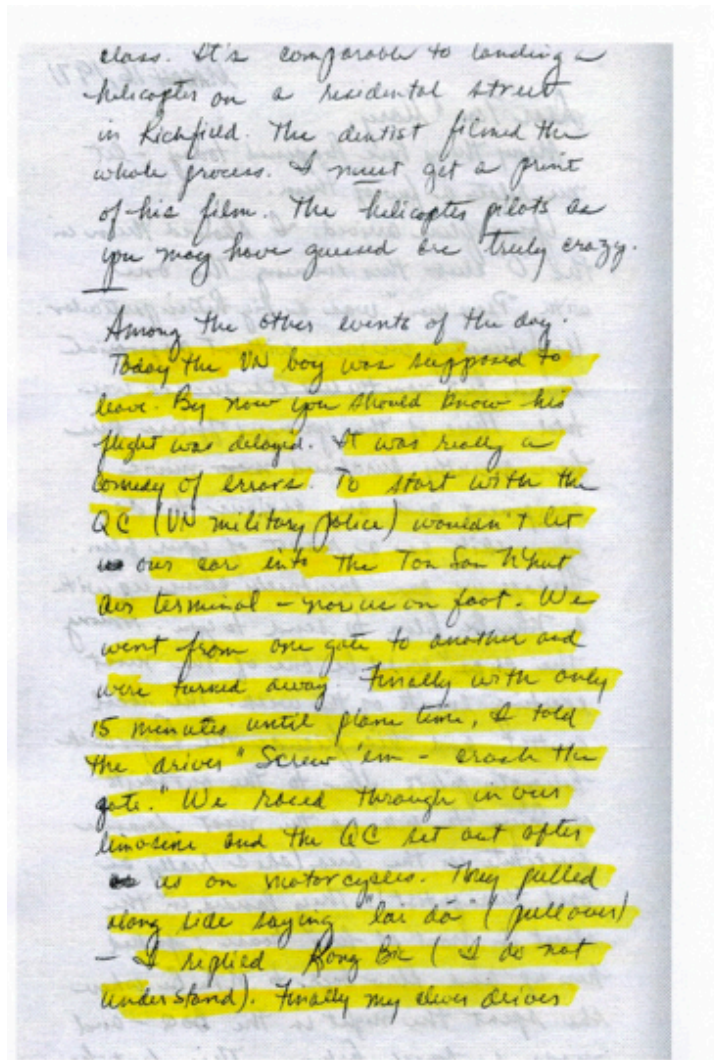 class. It's comparable to landing a
helicopter on a residental street
in Richfield. The dentist filmed the
whole process. I must get a print
of his film. The helicopter pilots as
you may have guessed are truly crazy.
Among the other events of the day.
Today the VN boy was supposed to
leave. By now you should know his
flight was delayed. It was really a
comedy of errors. To start with the
QC (VN military police) wouldn't let
our car into the Ton Son Nhut
air terminal – nor us on foot. We
went from one gate to another and
were turned away. Finally with only
15 minutes until plane time, I told
the driver "Screw 'em – crash the
gate." We raced through in our
limosine and the QC set out after
us on motorcycles. They pulled
along side saying "lai dá" (pull over)
– I replied Kong Bic (I do not
understand). Finally my clever driver